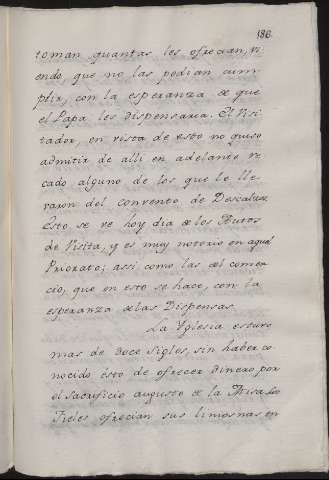 186.
toman quantas les ofrecian, vi
endo, que no las podian cum-
plir, con la esperanza de que
el Papa les dispensaria. El Visi
tador, en vista de esto no quiso
admitir de alli en adelante re
cado alguno de los que le lle
varon del convento de Descalzas
Esto se ve hoy dia de los Autos
de Visita, y es muy notorio en aquel
Priorato; assi como las del comer
cio, que en esto se hace, con la
esperanza de las Dispensas.
La Yglesia estuvo
mas de doce siglos, sin haber co
nocido esto de ofrecer dinero por
el sacrificio augusto de la Misa. Los
Fieles ofrecian sus limosnas en